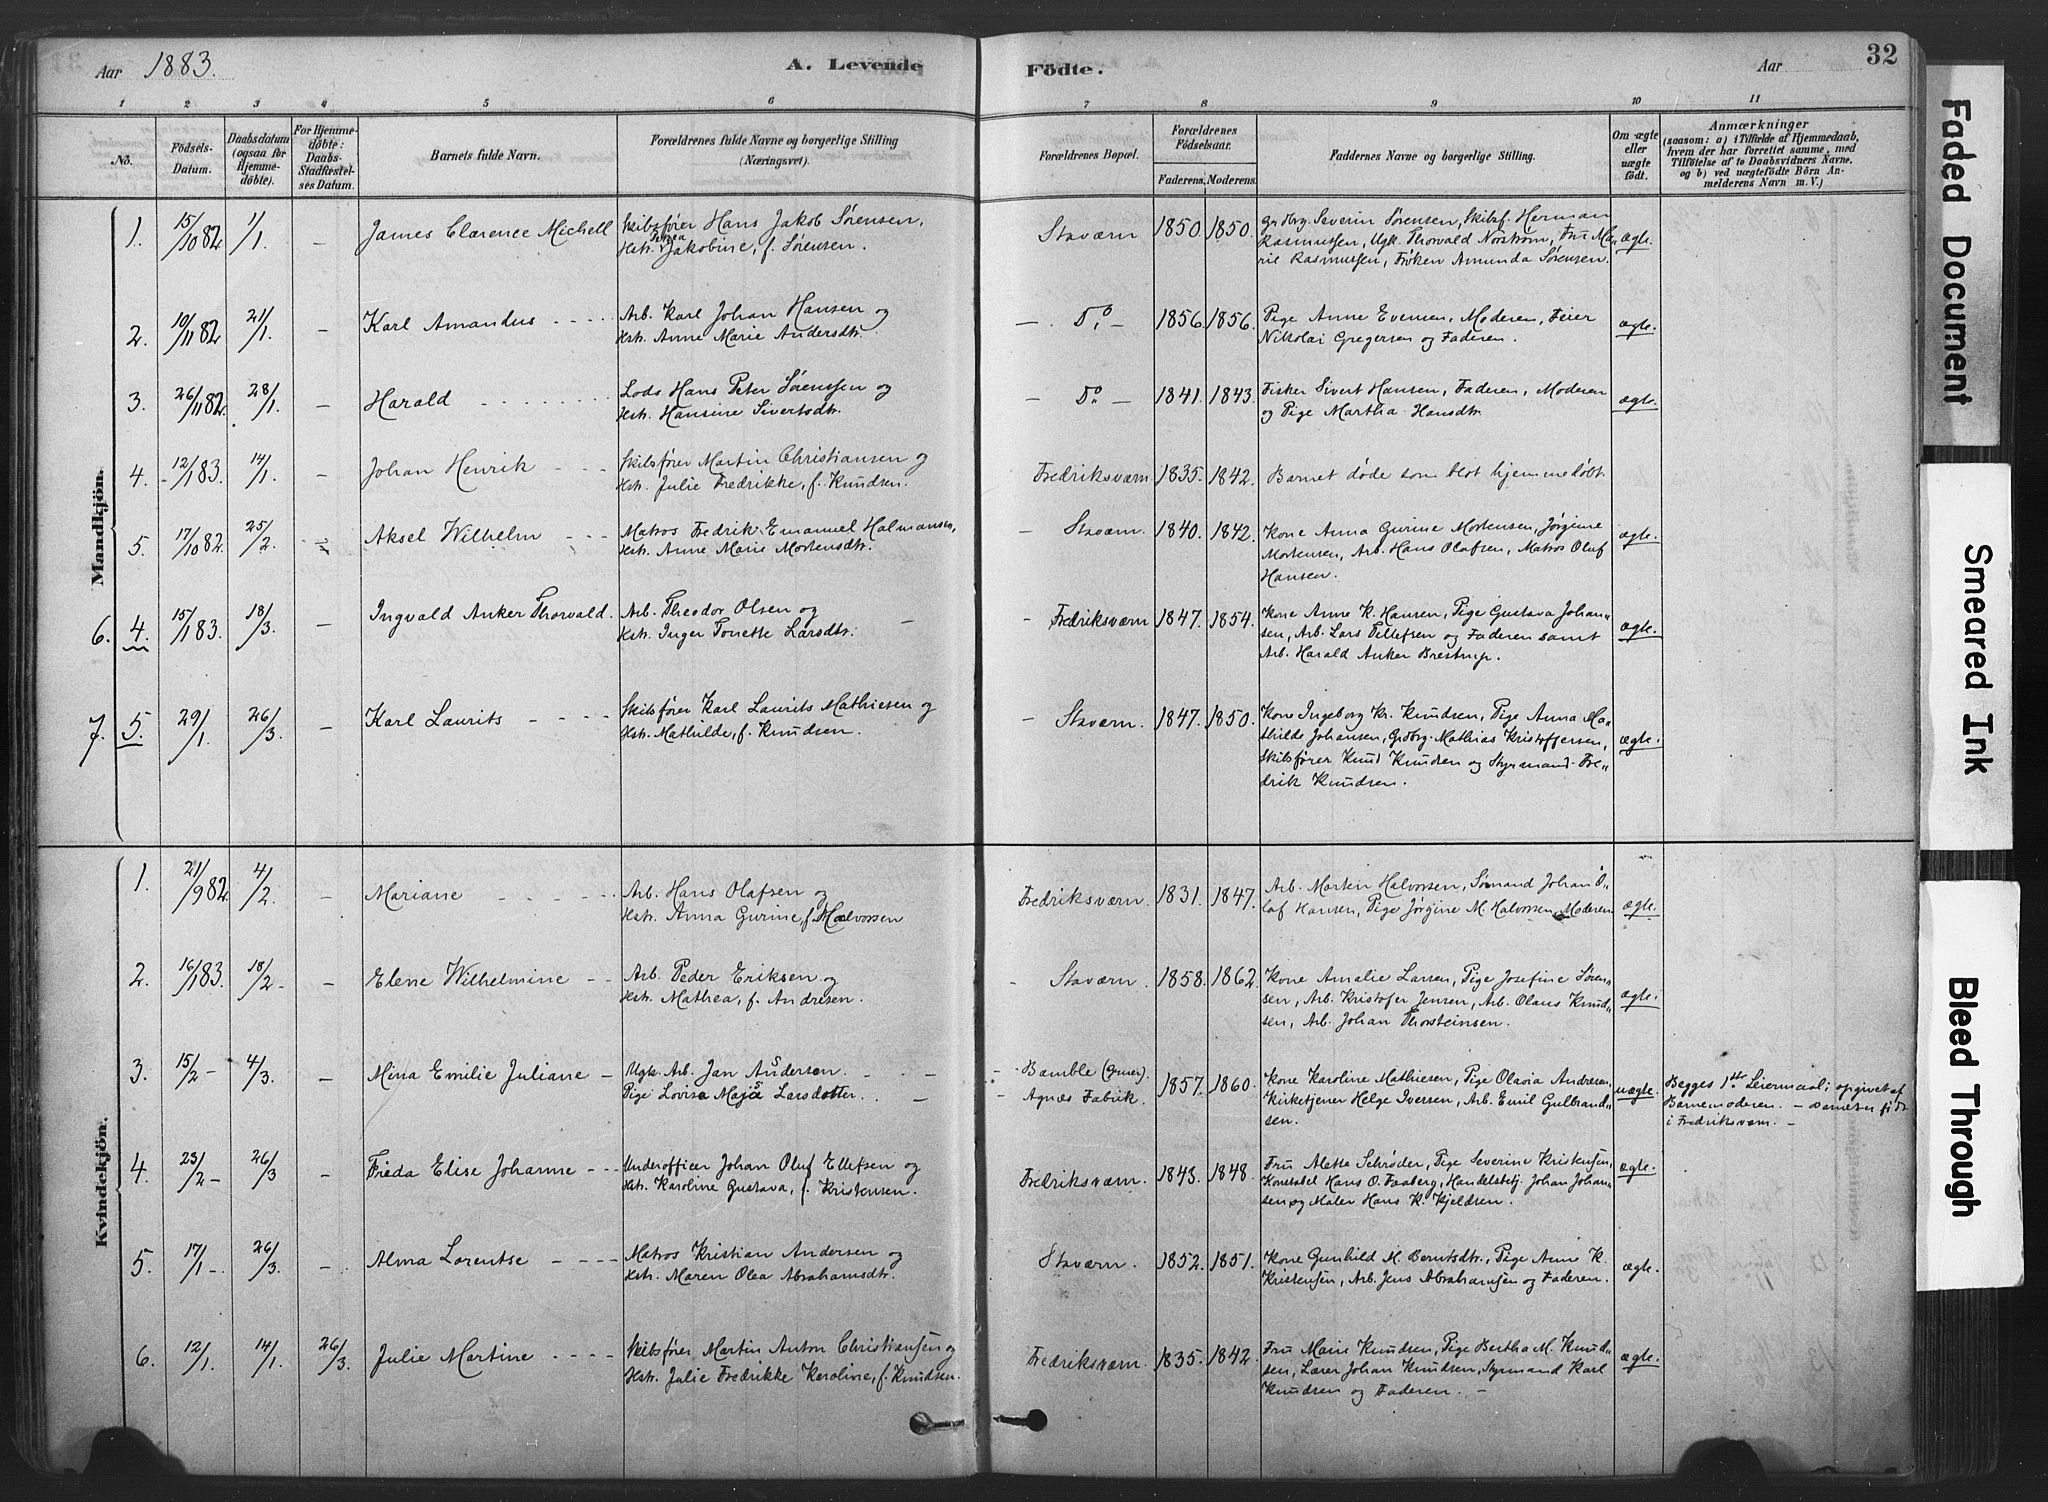 Aar 1883.
A. Levende
Födte.
Aar
32
1 2 3 4 5 6 7 8 9 10 11
No.
Födsels-
Datum.
Daabsdatum
(ogsaa for
Hjemme-
döbte).
For Hjemme-
döbte:
Daabs-
Stadfæstel-
ses Datum.
Barnets fulde Navn.
Forældrenes fulde Navne og borgerlige Stilling
(Næringsvei).
Forældrenes Bopæl.
Forældrenes
Födselsaar.
Faderens. Moderens.
Faddernes Navne og borgerlige Stilling.
Om ægte
eller
uægte
födt.
Anmærkninger
(saasom: a) i Tilfælde af Hjemmedaab,
hvem der har forrettet samme, med
Tilföielse af to Daabsvidners Navne,
og b) ved uægtefödte Börn An-
melderens Navn m. V.)
Mandkjön.
1. 15/10 82 1/1. – James Clarence Michell
Skibsfører Hans Jakob Sørensen,
Hstr. Jakobine, f. Sørensen.
Staværn 1850. 1850.
Grdbrg. Severin Sørensen, Skibsf. Herman
Rasmussen, Ugk. Thorvald Norstrøm, Fru Ma„
rie Rasmussen, Frøken Amunda Sørensen.
ægte.
2. 10/11 82 21/1. – Karl Amandus - - - -
Arb. Karl Johan Hansen og
Hstr. Anne Marie Andersdtr.
–. Do. – 1856. 1856.
Pige Anne Evensen, Moderen, Feier
Nikolai Gregersen og Faderen.
ægte.
3. 26/11 82. 28/1. – Harald - - - - - - -
Lods Hans Peter Sørenssen og
Hstr. Hansine Sivertsdtr.
– Do – 1841. 1843.
Fisker Sivert Hansen, Faderen, Moderen
og Pige Martha Hansdtr.
ægte.
4. 12/1 83. 14/1. – Johan Henrik - - -
Skibsfører Martin Christiansen og
Hstr. Julie Fredrikke, f. Knudsen.
Fredriksværn 1835. 1842.
Barnet døde som blot hjemmedøbt.
5. 17/10 82. 25/2. Aksel Wilhelm - - -
Matros Fredrik Emanuel Halmansen,
Hstr. Anne Marie Mortensdtr.
– Staværn. 1840. 1842.
Kone Anna Gurine Mortensen, Jørgine
Mortensen, Arb. Hans Olafsen, Matros Oluf
Hansen.
ægte.
6. 4. 15/1 83. 18/3. – Ingvald Anker Thorvald.
Arb. Theodor Olsen og
Hstr. Inger Tonette Larsdtr. –
– Fredriksværn 1847. 1854.
Kone Anne K. Hansen, Pige Gustava Johan„
sen, Arb. Lars Tellefsen og Faderen samt
Arb. Harald Anker Brestrup.
ægte.
7. 5. 29/1. 26/3. – Karl Laurits - - - -
Skibsfører Karl Laurits Mathiesen og
Hstr. Mathilde, f. Knudsen.
– Staværn. 1847. 1850.
Kone Ingeborg Kr. Knudsen, Pige Anna Ma„
thilde Johansen, Grdbrg. Mathias Kristoffersen,
Skibsfører Knud Knudsen og Styrmand Fre„
drik Knudsen.
ægte.
Kvindekjön.
1. 21/9 82. 4/2. – Mariane - - - - - -
Arb. Hans Olafsen og
Hstr. Anna Gurine, f. Halvorsen
Fredriksværn. 1831. 1847.
Arb. Martin Halvorsen, Sømand Johan O„
laf Hansen, Pige Jørgine M. Halvorsen, Moderen
ægte.
2. 16/1 83. 18/2 - – Elene Wilhelmine - -
Arb. Peder Eriksen og
Hstr. Mathea, f. Andresen.
- Staværn. 1858. 1862.
Kone Amalie Larsen, Pige Josefine Søren„
sen, Arb. Kristofer Jensen, Arb. Olaus Knud„
sen, Arb. Johan Thorsteinsen.
ægte.
3. 15/2 – 4/3. – Mina Emilie Juliane –
Ugk. Arb. Jan Anderson. - - –
Pige Lovisa Maja Larsdotter. . –
- Bamble (gmer).
- Agnes Fabrik. 1857. 1860.
Kone Karoline Mathiesen, Pige Olavia Andresen,
Kirketjener Helge Iversen, Arb. Emil Gulbrand„
sen.
uægte.
Begges 1ste Leiermaal; opgivet af
Barnemoderen. – Barnet er født
i Fredriksværn. –
4. 23/2 – 26/3 – Frida Elise Johanne - - -
Underofficer Johan Oluf Ellefsen og
Hstr. Karoline Gustava, f. Kristensen.
Fredriksværn. 1843. 1848.
Fru Alette Schrøder, Pige Severine Kristensen,
Konstabel Hans O. Faaberg, Handelsbetj. Johan Johan„
sen og Maler Hans K. Kjeldsen.
ægte.
5. 17/1 – 26/3. – Alma Lorentse - - - -
Matros Kristian Andersen og
Hstr. Maren Olea Abrahamsdtr.
Staværn. 1852. 1851.
Kone Gunhild M. Berntsdtr., Pige Anne K.
Kristensen, Arb. Jens Abrahamsen og Faderen.
ægte.
6. 12/1. 14/1. 26/3. Julie Martine - - - -
Skibsfører Martin Anton Christiansen og
Hstr. Julie Fredrikke Karoline, f. Knudsen.
Fredriksværn. 1835. 1842.
Fru Marie Knudsen, Pige Bertha M. Knud„
sen, Lærer Johan Knudsen, Styrmand Karl
Knudsen og Faderen. –
ægte.
Faded Document
Smeared Ink
Bleed Through